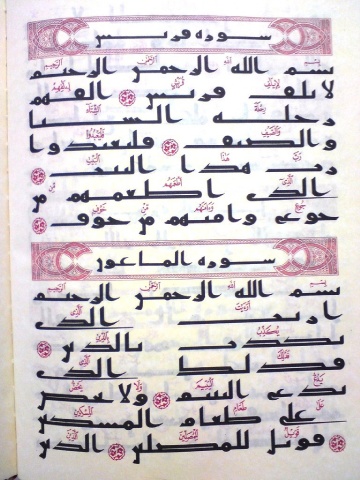 سورة قريش
بسم الله الرحمن الرحيم
لايلف قريش الفهم
رحلة الشتا
والصيف فليعبدوا
رب هذا البيت
الذي اطعمهم من
جوع وامنهم من خوف
سورة الماعون
بسم الله الرحمن الرحيم
اريت الذي
يكذب بالدين
فذلك الذي
يدع اليتيم ولا يحض
على طعام المسكين
فويل للمصلين الذين